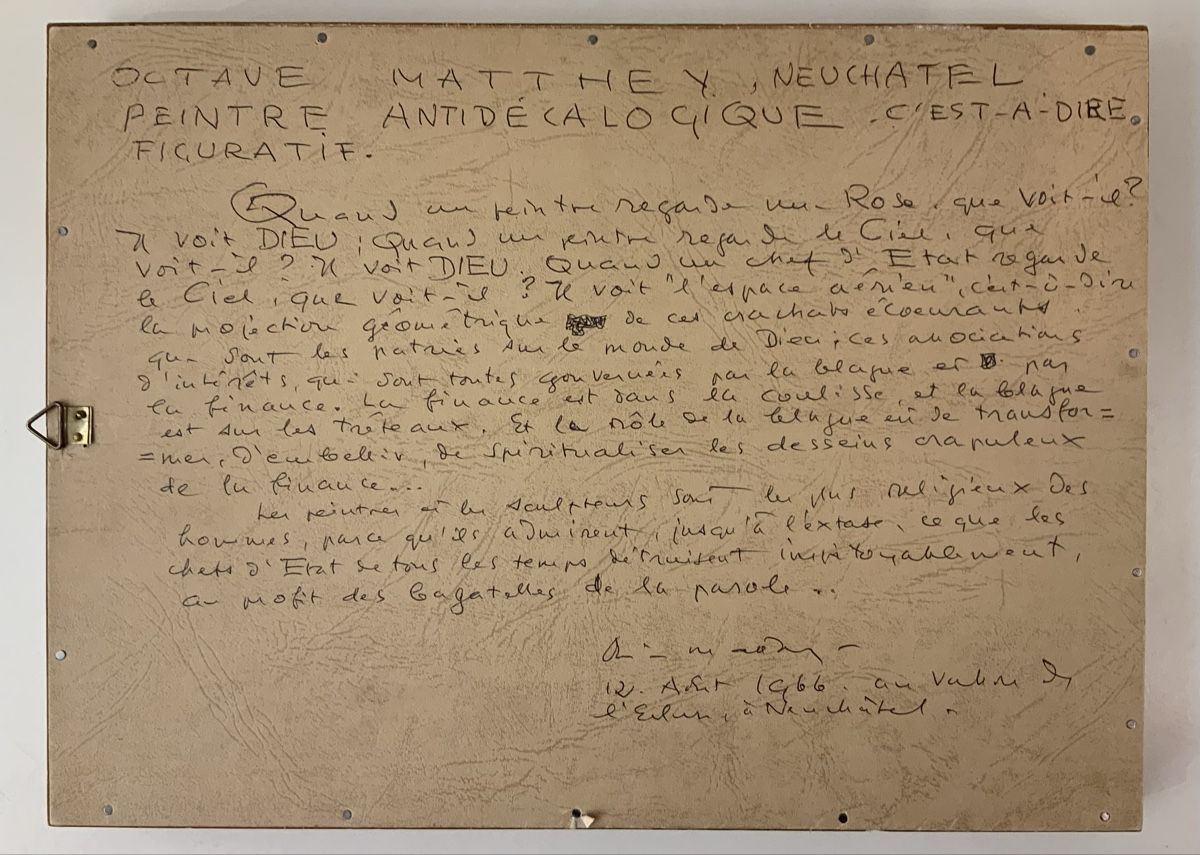 OCTAVE MATTHEY, NEUCHATEL
PEINTRE ANTIDÉCALOGIQUE. C'EST-À-DIRE
FIGURATIF.
Quand un peintre regarde une Rose, que voit-il?
Il voit DIEU; Quand un peintre regarde le Ciel, que
voit-il? Il voit DIEU. Quand un chef d'Etat regarde
le Ciel, que voit-il? Il voit "l'espace aérien", c'est-à-dire
la projection géométrique de ces crachats écoeurants
que sont les patries sur le monde de Dieu; ces associations
d'intérêts, qui sont toutes gouvernées par la blague et par
la finance. La finance est dans la coulisse, et la blague
est sur les trêteaux. Et le rôle de la blague est de transfor=
=mer, d'embellir, de spiritualiser les desseins crapuleux
de la finance...
Les peintres et les sculpteurs sont les plus religieux des
hommes, parce qu'ils admirent, jusqu'à l'extase, ce que les
chefs d'Etat de tous les temps détruisent impitoyablement,
au profit des bagatelles de la parole...
12. Août 1966. au Vallon de
l'Ecluse, à Neuchâtel.